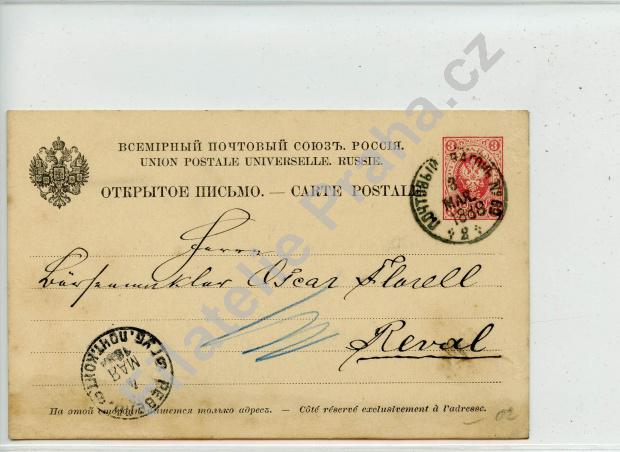 ВСЕМІРНЫЙ ПОЧТОВЫЙ СОЮЗЪ. РОССІЯ.
UNION POSTALE UNIVERSELLE. RUSSIE.
ОТКРЫТОЕ ПИСЬМО. — CARTE POSTALE
3 3
ПОЧТОВЫЙ ВАГОНЪ № 60
3
МАЯ
1888
2
Herrn
Börsenmakler Oscar Florell
Reval
РЕВЕЛЬ
ГУБ. ПОЧТ. КОНТ.
4
МАЯ
На этой сторонѣ пишется только адресъ. — Côté réservé exclusivement à l'adresse.
02
Filatelie Praha.cz